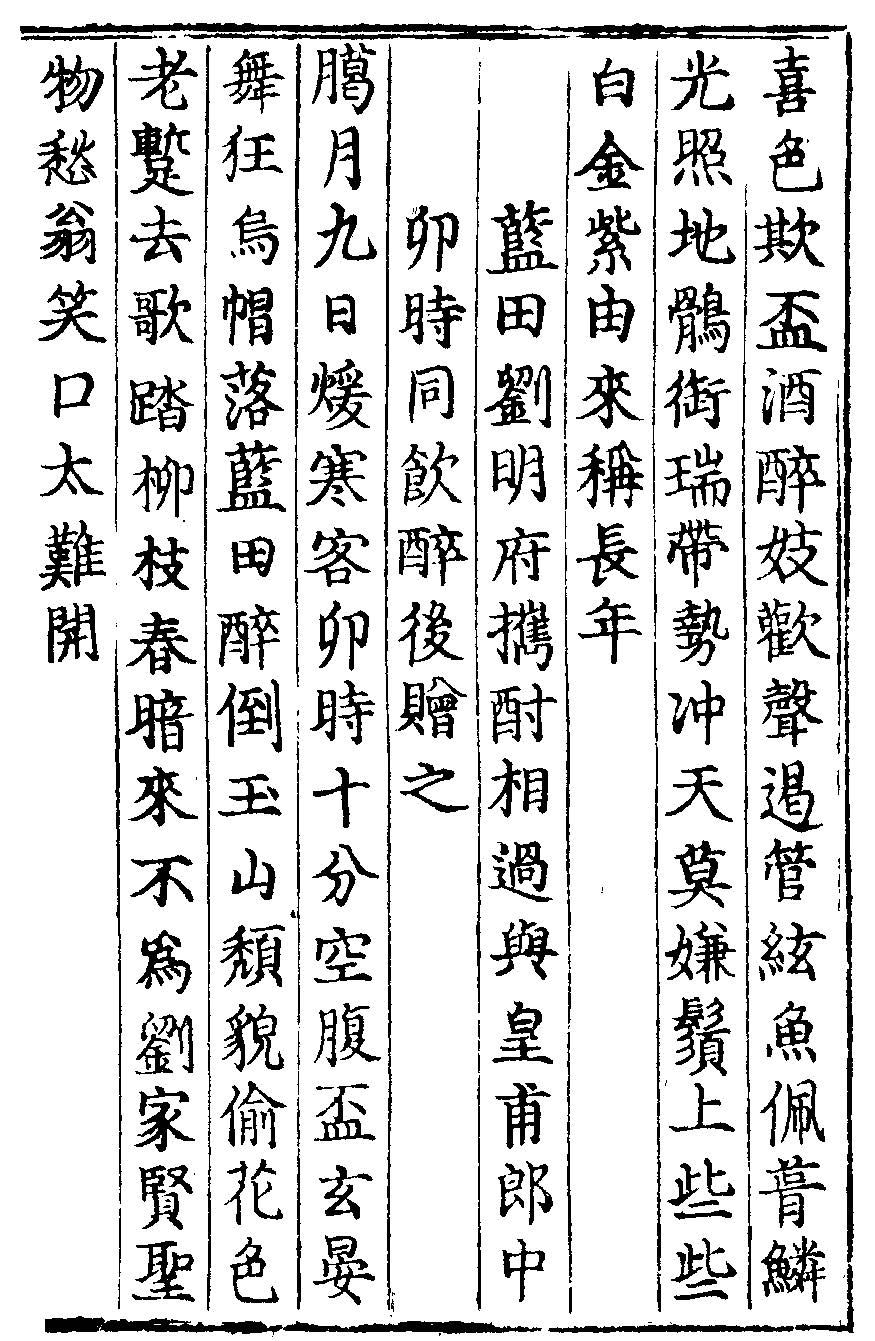 喜色欺盃酒醉妓歡聲遏管絃魚佩葺鱗
光照地鶻銜瑞帶勢冲天莫嫌鬚上些些
白金紫由來稱長年
藍田劉明府攜酎相過與皇甫郎中
卯時同飲醉後贈之
臈月九日煖寒客卯時十分空腹盃玄晏
舞狂烏帽落藍田醉倒玉山頹貌偷花色
老蹔去歌踏柳枝春暗來不爲劉家賢聖
物愁翁笑口太難開